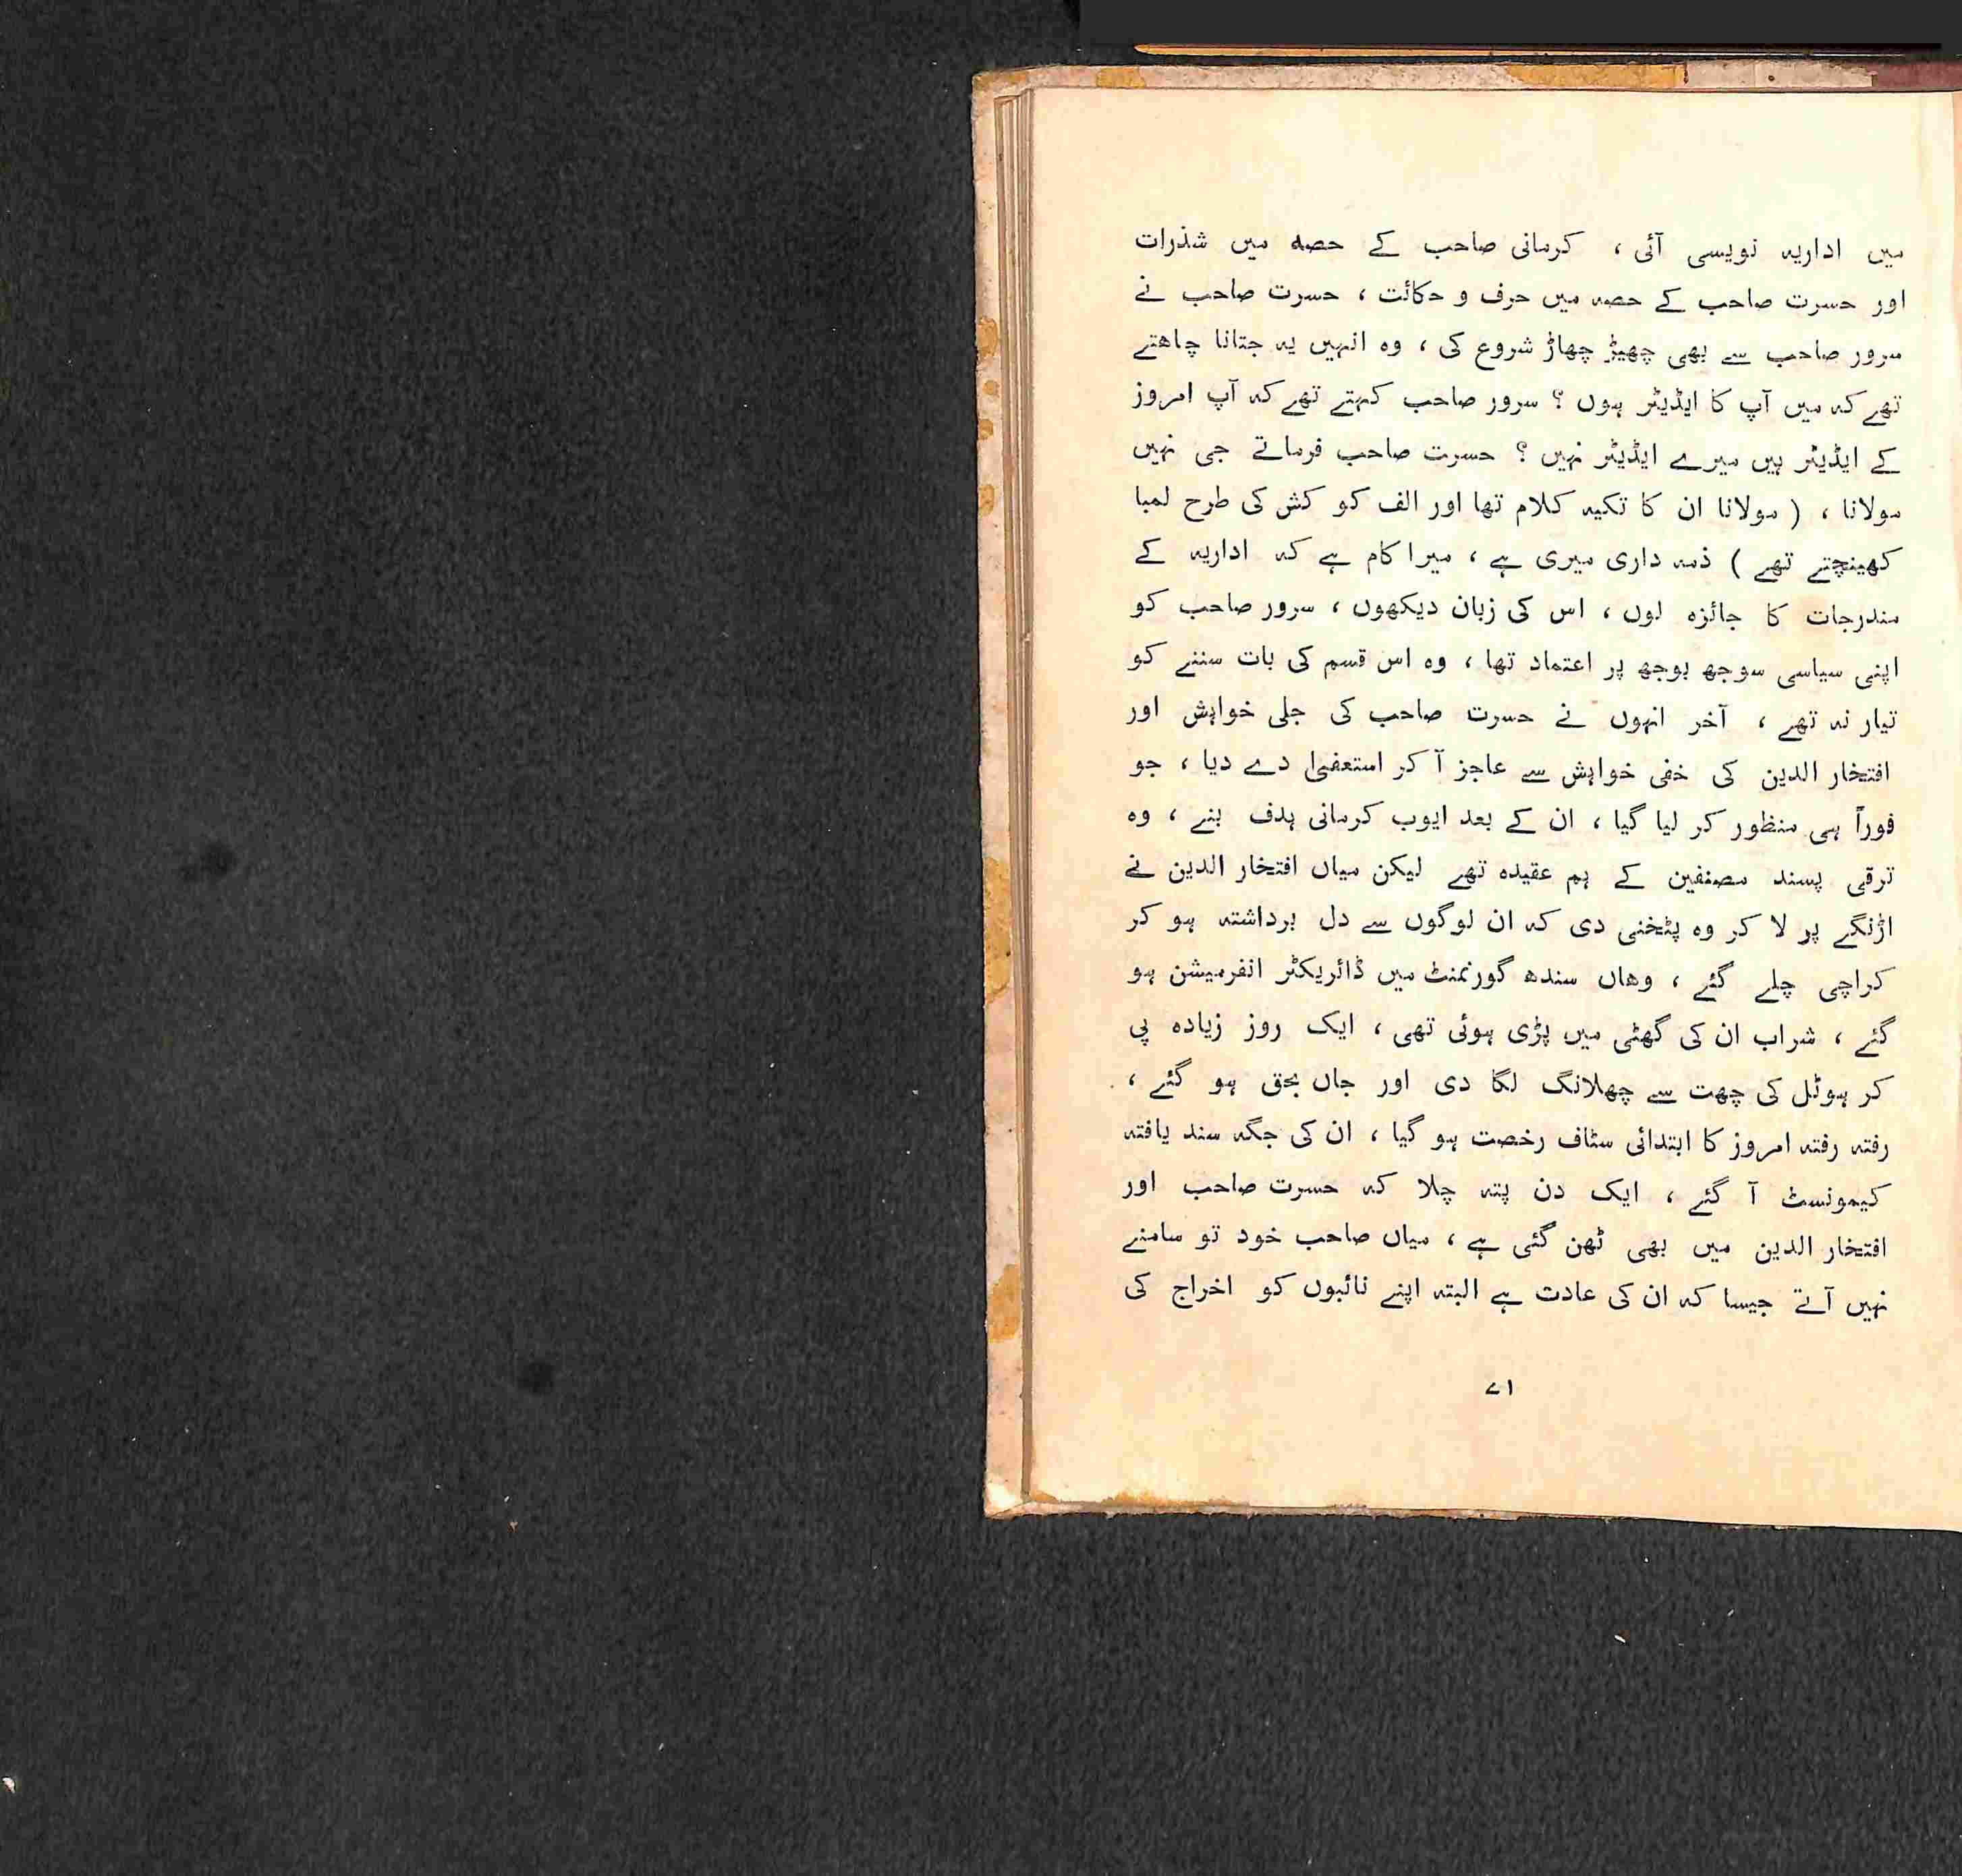 میں اداریہ نویسی آئی ، کرمانی صاحب کے حصہ میں شذرات
اور حسرت صاحب کے حصہ میں حرف و حکائت ، حسرت صاحب نے
سرور صاحب سے بھی چھیڑ چھاڑ شروع کی ، وہ انہیں یہ جتانا چاھتے
تھے کہ میں آپ کا ایڈیٹر ہوں ؟ سرور صاحب کہتے تھے کہ آپ امروز
کے ایڈیٹر ہیں میرے ایڈیٹر نہیں ؟ حسرت صاحب فرماتے جی نہیں
مولانا ، ( مولانا ان کا تکیہ کلام تھا اور الف کو کش کی طرح لمبا
کھینچتے تھے ) ذمہ داری میری ہے ، میرا کام ہے کہ اداریہ کے
مندرجات کا جائزہ لوں ، اس کی زبان دیکھوں ، سرور صاحب کو
اپنی سیاسی سوجھ بوجھ پر اعتماد تھا ، وہ اس قسم کی بات سننے کو
تیار نہ تھے ، آخر انہوں نے حسرت صاحب کی جلی خواہش اور
افتخار الدین کی خفی خواہش سے عاجز آ کر استعفیٰ دے دیا ، جو
فوراً ہی منظور کر لیا گیا ، ان کے بعد ایوب کرمانی ہدف بنے ، وہ
ترقی پسند مصنفین کے ہم عقیدہ تھے لیکن میاں افتخار الدین نے
اڑنگے پر لا کر وہ پٹخنی دی کہ ان لوگوں سے دل برداشتہ ہو کر
کراچی چلے گئے ، وھاں سندھ گورنمنٹ میں ڈائریکٹر انفرمیشن ہو
گئے ، شراب ان کی گھٹی میں پڑی ہوئی تھی ، ایک روز زیادہ پی
کر ہوٹل کی چھت سے چھلانگ لگا دی اور جاں بحق ہو گئے ،
رفتہ رفتہ امروز کا ابتدائی سٹاف رخصت ہو گیا ، ان کی جگہ سند یافتہ
کیمونسٹ آ گئے ، ایک دن پتہ چلا کہ حسرت صاحب اور
افتخار الدین میں بھی ٹھن گئی ہے ، میاں صاحب خود تو سامنے
نہیں آتے جیسا کہ ان کی عادت ہے البتہ اپنے نائبوں کو اخراج کی
۷۱